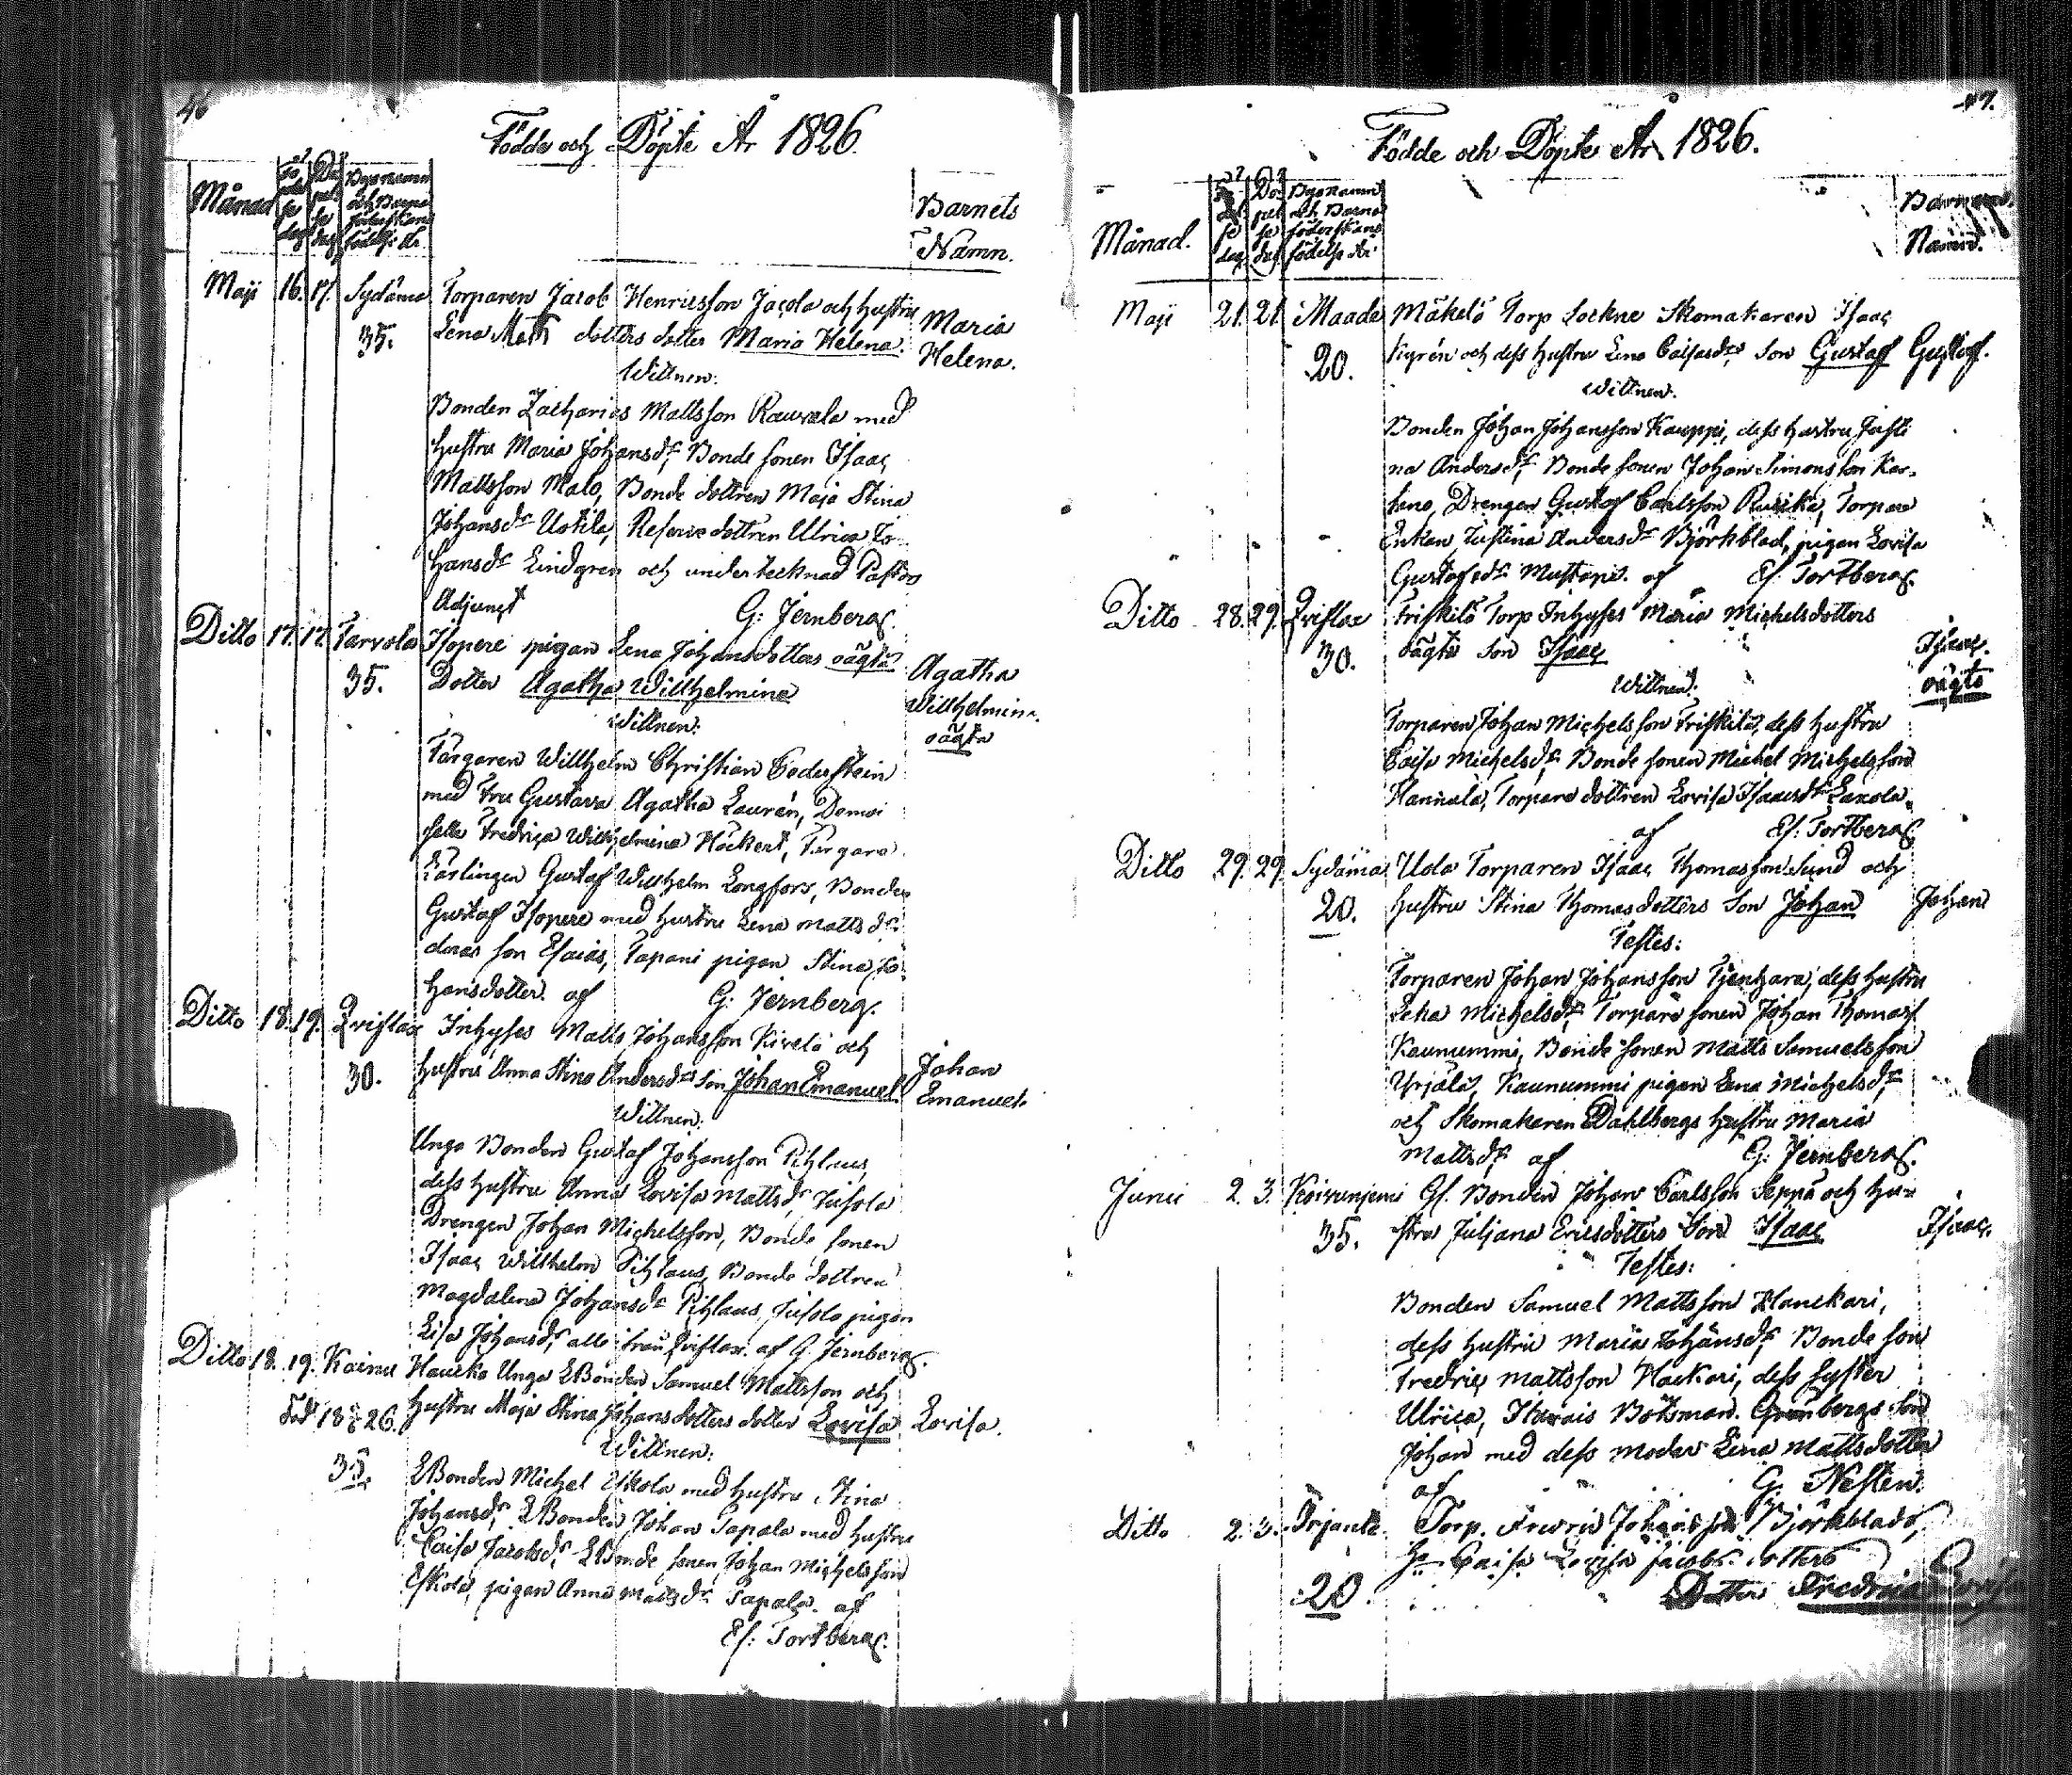 46
Födde och Döpte År 1826.
Månad
Födelse dag
Döpelse dag
Bynamn och Barnaföderskans födelse År.
Barnets Namn.
Maji 16. 17. Sydäma Torparen Jacob Henricsson Jacola och hustru
35. Lena Matts dotters dotter Maria Helena. Maria Helena.
Wittnen:
Bonden Zacharias Mattsson Rauvala med
hustru Maria Johansdr, Bonde sonen Isaac
Mattsson Malo, Bonde dottren Maja Stina
Johansdr Uotila, Reserve dottren Ulrica Jo
hansdr Lindgren och undertecknad Pastors
Adjunct G: Jernberg.
Ditto 17. 17. Tarvola Isopere pigan Lena Johansdotters oägta
35. Dotter Agatha Willhelmina Agatha Willhelmina oägta
Wittnen:
Färgaren Willhelm Christian
med Fru Gustava Agatha Laurén, Demoi
selle Fredrica Willhelmina Höckert, Färgare
Lärlingen Gustaf Willhelm Longfors, Bonden
Gustaf Isopere med hustru Lena Mattsdr
deras son Esaias, Tapani pigan Stina Jo
hansdotter. af G: Jernberg.
Ditto 18. 19. Qviflax Inhyses Matts Johansson Kivelä och
30. hustru Anna Stina Andersdrs son Johan Emanuel Johan Emanuel.
Wittnen:
Unga Bonden Gustaf Johansson Pihlaus,
dess hustru Anna Lovisa Mattsdr,
Drengen Johan Michelsson, Bonde sonen
Isaac Willhelm Pihlaus, Bonde dottren
Magdalena Johansdr Pihlaus, pigan
Lisa Johansdr, alle från Qviflax. af G. Jernberg.
Ditto 18. 19. Kainu Haucka Unga EBonden Samuel Mattsson och
hustru Maja Stina Johansdotters dotter Lovisa Lovisa.
Wittnen:
35. EBonden Michel Eskola med hustru Stina
Johansdr, EBonden Johan Papala med hustru
Caisa Jacobsdr, EBonde sonen Johan Michelsson
Eskola, pigan Anna Mattsdr Papala. af
Es: Tortberg.
47.
Födde och Döpte År 1826.
Månad.
Födelse dag
Döpelse dag
Bynamn och Barnaföderskans födelse År
Barnets Namn.
Maji 21. 21. Maade Mäkelä Torp Sockne Skomakaren Isaac
20. Kyrén och dess hustru Lena Caisasdrs son Gustaf Gustaf.
Wittnen.
Bonden Johan Johansson Kauppi, dess hustru Justi
na Andersdr, Bonde sonen Johan Simonsson Kar-
hino, Drengen Gustaf Carlsson Rusika, Torpare
Enkan Justina Andersdr Björkblad, pigan Lovisa
Gustafsdr Mustapä. af Es. Tortberg.
Ditto 28. 29. Qviflax Friskilä Torp Inhyses Maria Michelsdotters
30. oägta son Isaac Isaac. oägta
Wittnen:
Torparen Johan Michelsson Friskilä, dess hustru
Caisa Michelsdr, Bonde sonen Michel Michelsson
Hannula, Torpare dottren Lovisa Isaacsdr Laxola.
af Es: Tortberg.
Ditto 29. 29. Sydäma Uola Torparen Isaac Thomasson Sund och
20. hustru Stina Thomasdotters son Johan Johan
Testes:
Torparen Johan Johansson Tjenhara, dess hustru
Lena Michelsdr, Torpare sonen Johan Thomass
Kaunummi, Bonde sonen Matts Samuelsson
Yrjälä, Kaunummi pigan Lena Michelsdr
och Skomakaren Dahlbergs hustru Maria
Mattsdr af G: Jernberg.
Junii 2. 3. Koivunjemi Gl. Bonden Johan Carlsson Seppä och hu-
35. stru Juliana Ericsdotters Son Isaac Isaac.
Testes:
Bonden Samuel Mattsson Hanckari,
dess hustru Maria Johansdr Bonde son
Fredric Mattsson Hackari, dess syster
Ulrica, Båtsman. Grönbergs son
Johan med dess moder Lena Mattsdotter
af G. Nesten.
Ditto 2. 3. Torp. Fredric Johansson Björkblads,
Hu Caisa Lovisa Jacobs dotters
20. Dotter Fredrica Lovisa